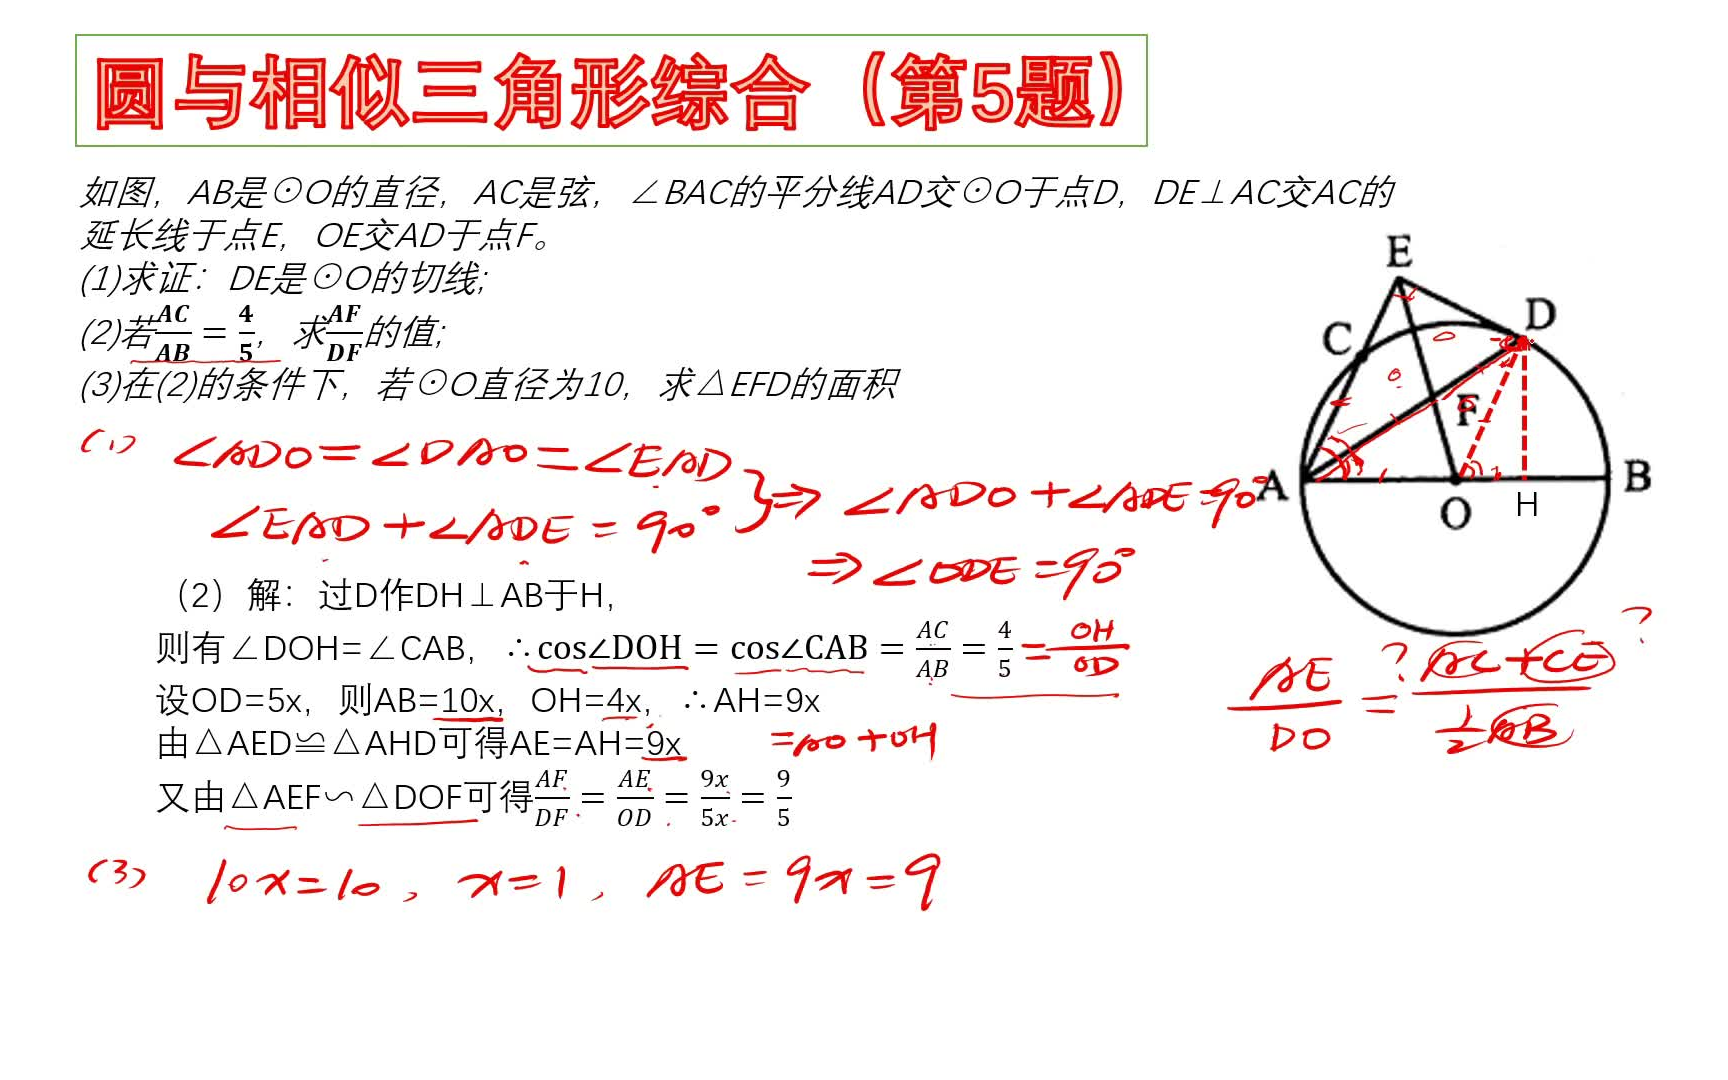 圆与相似三角形综合（第5题）
如图，AB是⊙O的直径，AC是弦，∠BAC的平分线AD交⊙O于点D，DE⊥AC交AC的
延长线于点E，OE交AD于点F。
(1)求证：DE是⊙O的切线;
(2)若AC/AB = 4/5，求AF/DF的值;
(3)在(2)的条件下，若⊙O直径为10，求△EFD的面积
(1) ∠ADO=∠DAO=∠EAD
∠EAD+∠ADE=90° } ⇒ ∠ADO+∠ADE=90°
⇒ ∠ODE=90°
（2）解：过D作DH⊥AB于H，
则有∠DOH=∠CAB，∴cos∠DOH = cos∠CAB = AC/AB = 4/5 = OH/OD
设OD=5x，则AB=10x，OH=4x，∴AH=9x
=AO+OH
由△AED≌△AHD可得AE=AH=9x
又由△AEF∽△DOF可得AF/DF = AE/OD = 9x/5x = 9/5
(3) 10x=10, x=1, AE=9x=9
E
C
D
F
A
O
H
B
AE/DO = (AC+CE)/(1/2 AB)
?
?